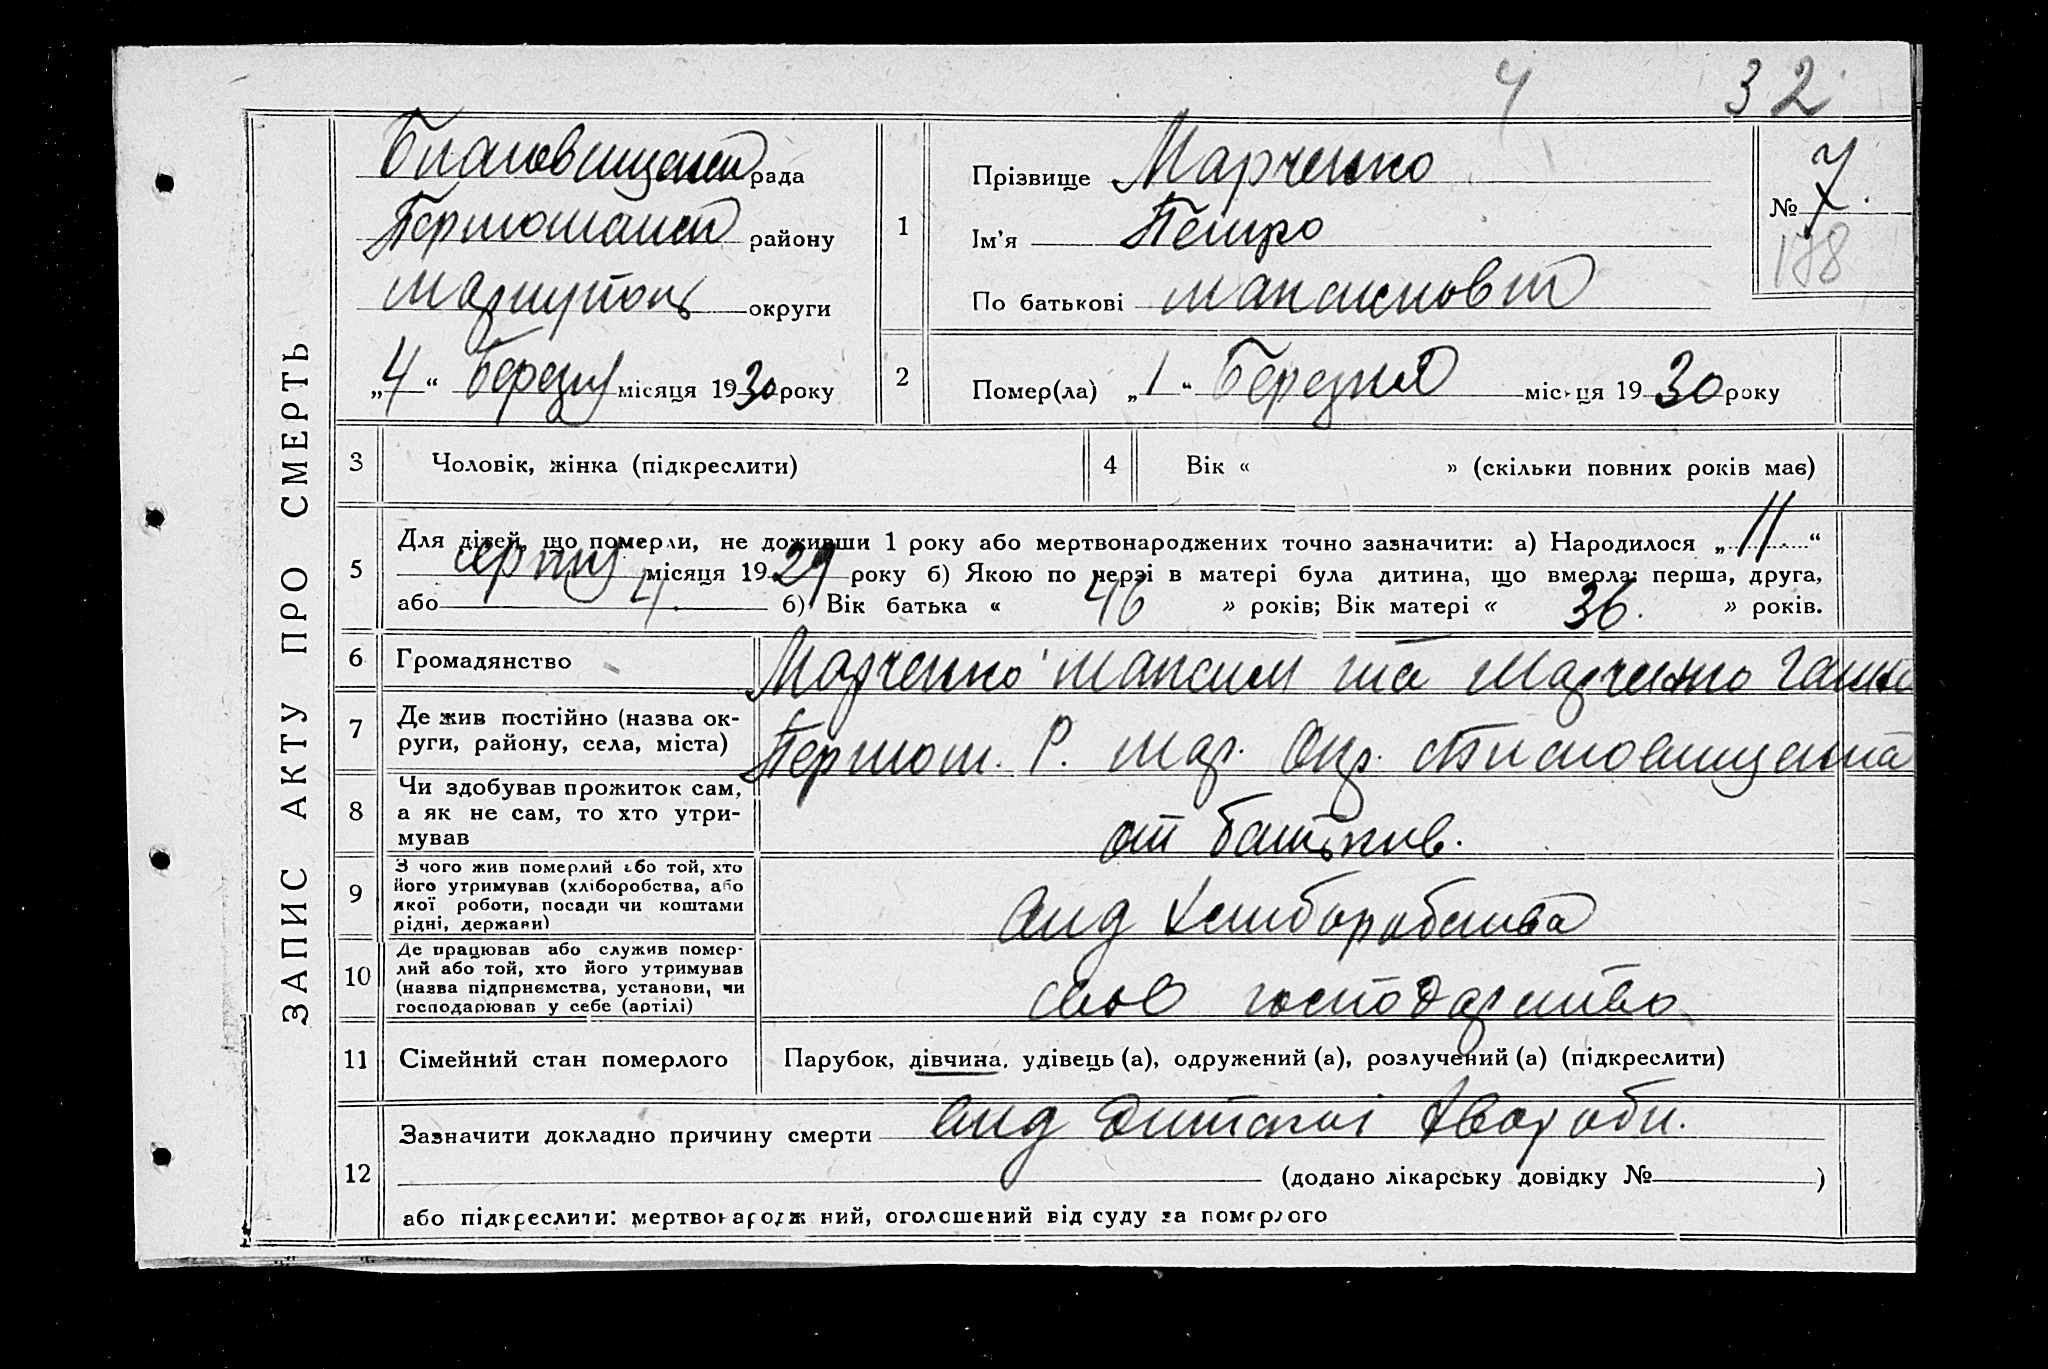 4 32
ЗАПИС АКТУ ПРО СМЕРТЬ
Благовищенс рада
Першотравн району
Маріупольс округи
„4“ Березня місяця 1930 року
1
Прізвище Марченко
Ім'я Петро
По батькові Максимовт
№ 7.
178
2
Помер(ла) „1“ Березня місяця 1930 року
3 Чоловік, жінка (підкреслити)
4 Вік « » (скільки повних років має)
5 Для дітей, що померли, не доживши 1 року або мертвонароджених точно зазначити: а) Народилося „11“
серпня місяця 1929 року б) Якою по черзі в матері була дитина, що вмерла: перша, друга,
або 4. б) Вік батька « 46 » років; Вік матері « 36. » років.
6 Громадянство Марченко Максим та Марченко
7 Де жив постійно (назва ок-
руги, району, села, міста)
Р. Мар. Окр.
8 Чи здобував прожиток сам,
а як не сам, то хто утри-
мував
от батькив.
9 З чого жив померлий або той, хто
його утримував (хліборобства, або
якої роботи, посади чи коштами
рідні, держави)
вид хлиборобства
10 Де працював або служив помер-
лий або той, хто його утримував
(назва підприємства, установи, чи
господарював у себе (артілі)
своє господарство
11 Сімейний стан померлого Парубок, дівчина, удівець (а), одружений (а), розлучений (а) (підкреслити)
12 Зазначити докладно причину смерти вид дитячої хвороби.
(додано лікарську довідку № )
або підкреслити: мертвонароджений, оголошений від суду за померлого